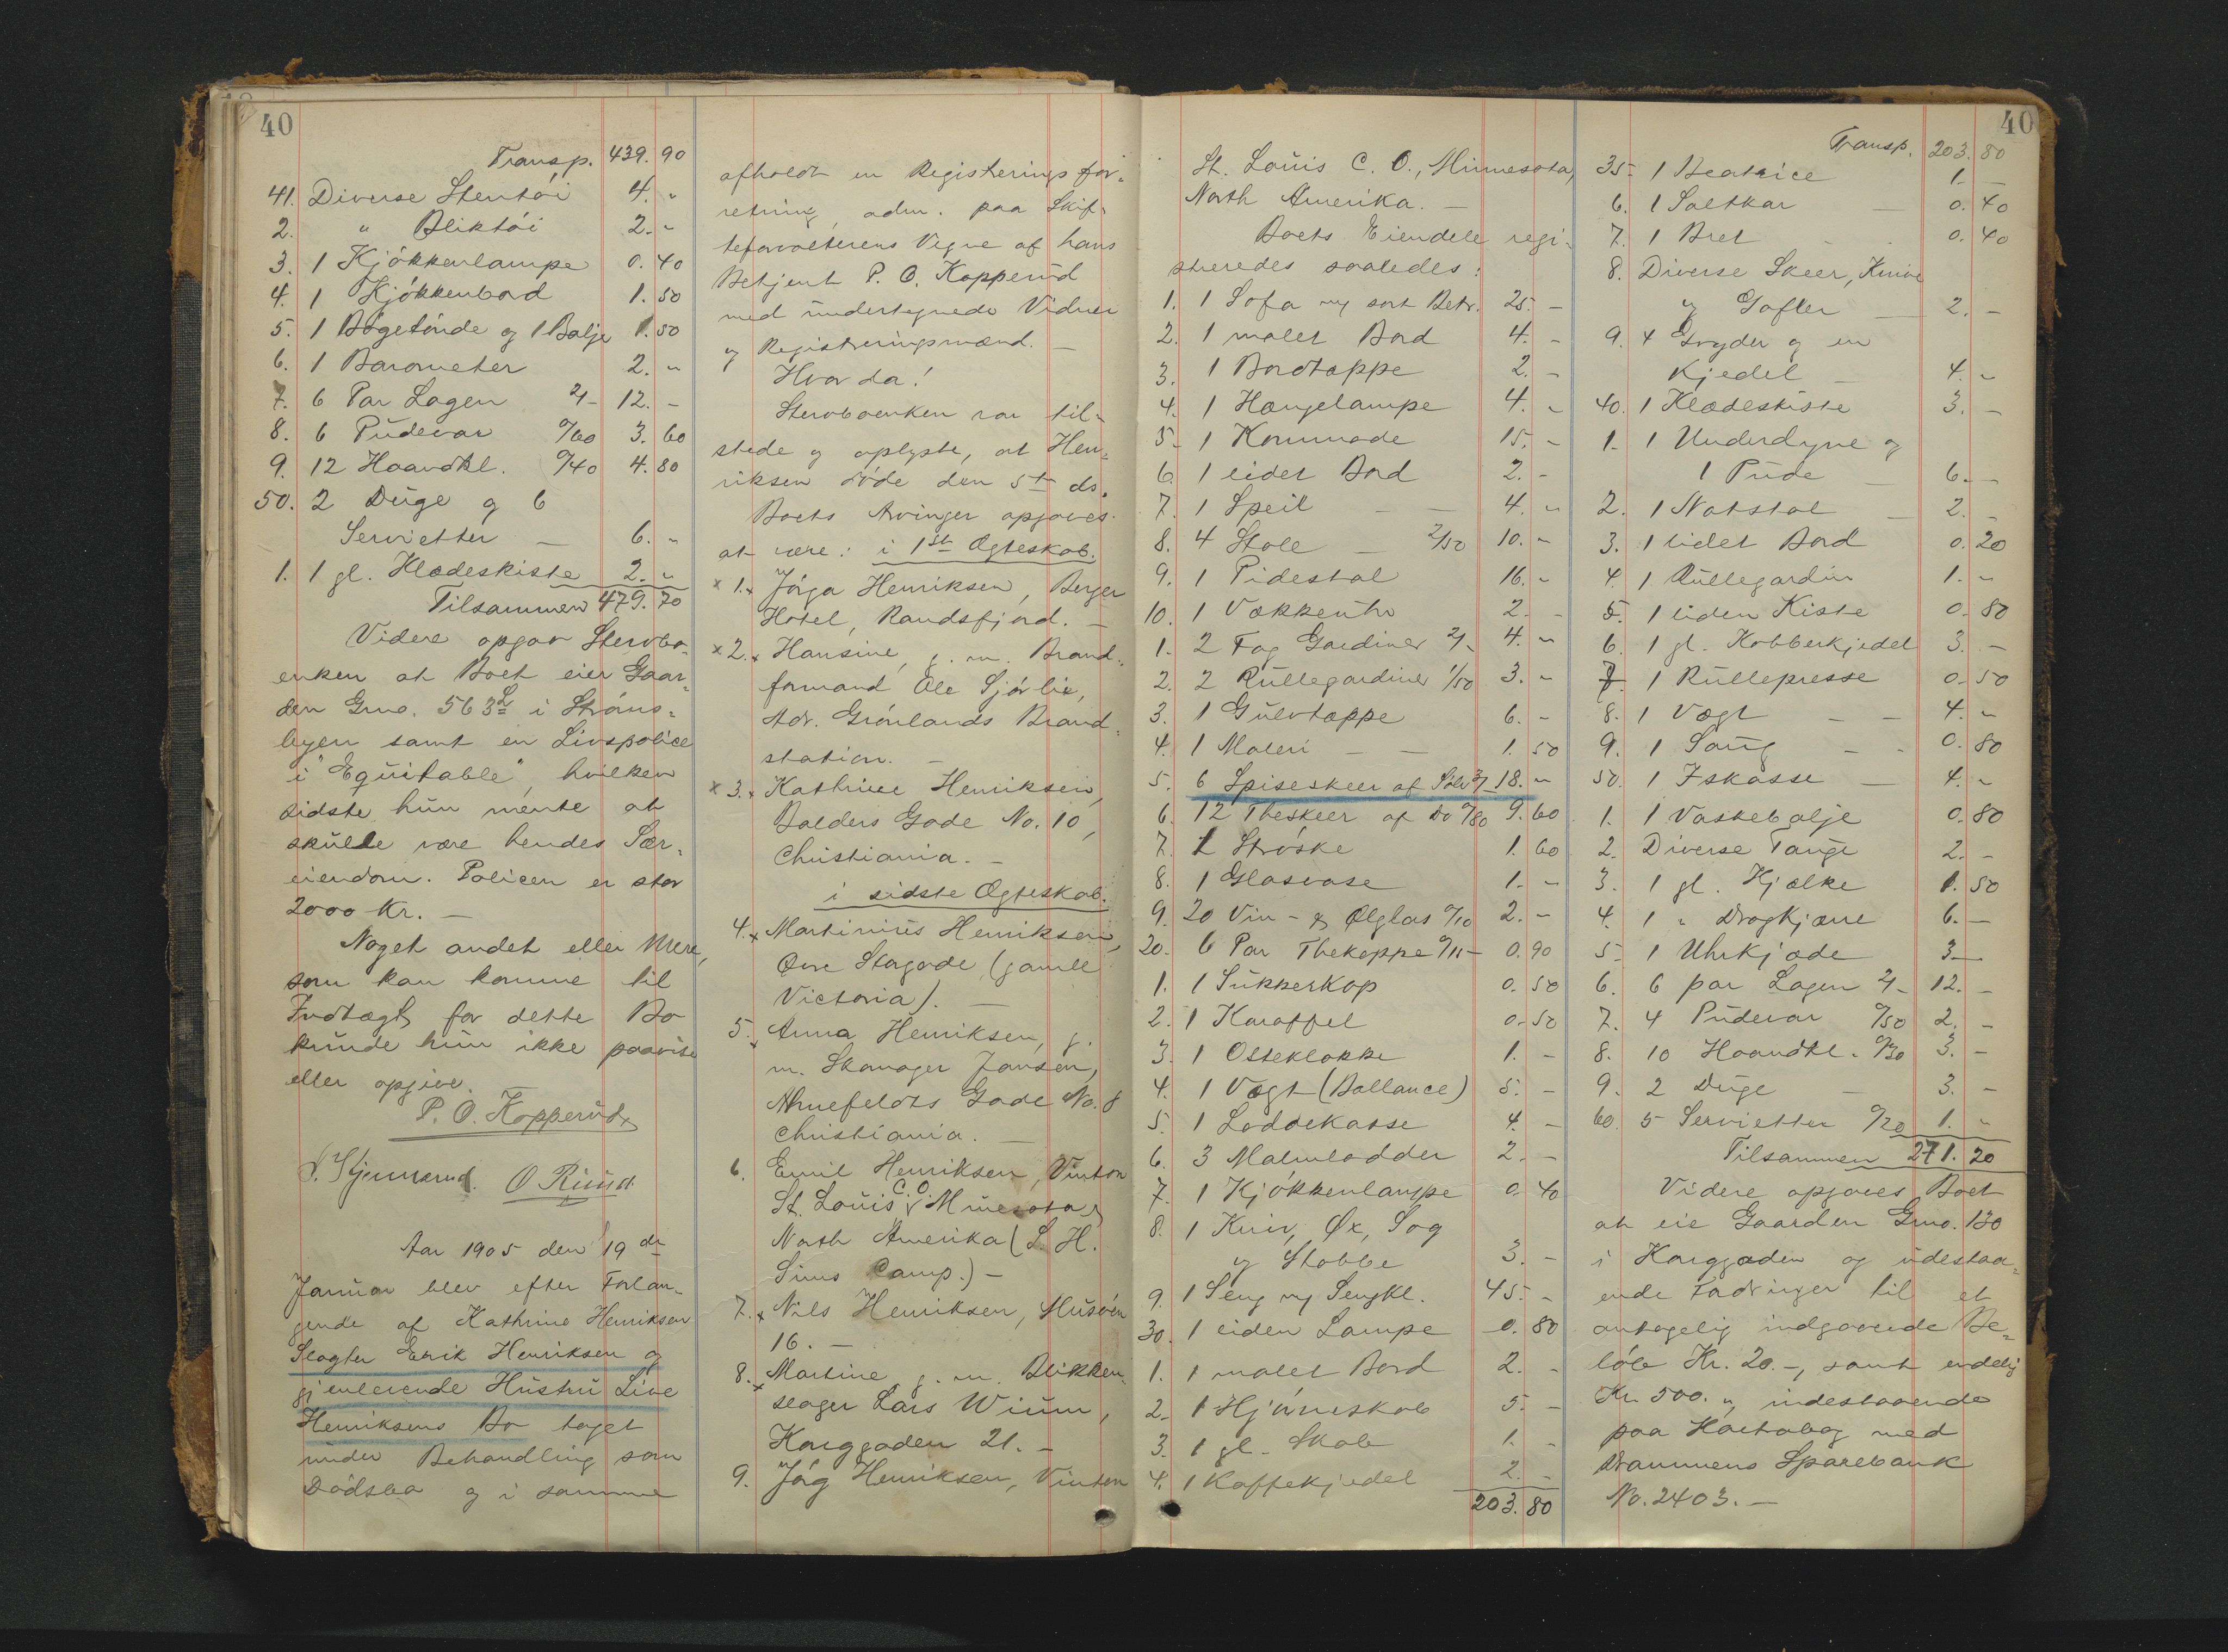 40
Transp. 439. 90
41. Diverse Stentöi 4. "
2. " Bliktöi 2. "
3. 1 Kjökkenlampe 0. 40
4. 1 Kjökkenbord 1. 50
5. 1 Bögetönde og 1 Balje 1. 50
6. 1 Barometer 2. "
7. 6 Par Lagen 2/- 12. -
8. 6 Püdevar 0/60 3. 60
9. 12 Haandkl. 0/40 4. 80
50. 2 Düge og 6
Servietter - 6. "
1. 1 gl. Klædeskiste 2. "
Tilsammen 479. 70
Videre opgav Stervbo-
enken at Boet eier Gaar-
den Grno. 563 i Ströms-
legen samt en Livspolice
i "Equitable", hvilken
sidste hün mente at
skülle være hendes Sær-
eiendom. Policen er stor
2000 Kr. -
Noget andet eller mere,
som kan komme til
Indtægt for dette Bo
künde hün ikke paavise
eller opgive.
P. O. Kopperüd
O Rüüd.
Aar 1905 den 19 de
Januar blev efter Forlan-
gende af Kathrine Henriksen
Slagter Erik Henriksen og
gjenlevende Hüstrü Live
Henriksens Bo taget
ünder Behandling som
Dödsbo og i samme
afholdt en Registrerings for-
retning, adm. paa Skif-
teforvalterens Vegne af hans
Betjent P. O. Kopperüd
med ündertegnede Vidner
og Registreringsmænd. -
Hvor da!
Stervboenken var til-
stede og oplyste, at Hen-
riksen döde den 5te ds.
Boets Arvinger opgaves
at være: i 1ste Ægteskab.
x 1. x Jörga Henriksen, Berger
Hotel, Randsfjord. -
x 2. x Hansine, g. m. Brand-
formand Ole Sjörlie,
Adr. Grönlands Brand-
station. -
x 3. x Kathrine Henriksen,
Balders Gade No. 10,
Christiania. -
i sidste Ægteskab.
4. x Martinius Henriksen,
Övre Storgade (gamle
Victoria). -
5. x Anna Henriksen, g.
m. Skomager Jansen,
Ahnefeldts Gade No. 8
Christiania. -
6. Emil Henriksen, Vinton
St. Louis C. O. Minesota,
North Amerika (S. H.
Sims Camp.) -
7. x Nils Henriksen, Müsöen
16. -
8. x Martine g. m. Blikken-
slager Lars Wiüm,
Konggaden 21. -
9. Jörg Henriksen, Vinton
St. Louis C. O., Minnesota,
North Amerika. -
Boets Eiendele regi-
streredes saaledes:
1. 1 Sofa og sort Betr. 25. -
2. 1 malet Bord 4. -
3. 1 Bordtæppe 2. -
4. 1 Hængelampe 4. "
5. 1 Kommode 15. -
6. 1 lidet Bord 2. -
7. 1 Speil - - 4. "
8. 4 Stole - 2/50 10. "
9. 1 Pidestal 16. "
10. 1 Vækkeuhr 2. -
1. 2 Fag Gardiner 2/- 4. "
2. 2 Rüllegardiner 1/50 3. "
3. 1 Gülvtæppe 6. -
4. 1 Maleri - - 1. 50
5. 6 Spiseskeer af Sölv 3/- 18. "
6. 12 Theskeer af Do 0/80 9. 60
7. 1 Ströske 1. 60
8. 1 Glasvase 1. -
9. 20 Vin- og Ølglas 0/10 2. -
20. 6 Par Thekoppe 0/15 0. 90
1. 1 Sükkerkop 0. 50
2. 1 Karaffel 0. 50
3. 1 Osteklokke 1. -
4. 1 Vægt (Ballance) 5. -
5. 1 Loddekasse 4. -
6. 3 Malmlodder 2. -
7. 1 Kjökkenlampe 0. 40
8. 1 Kniv, Øx, Sag
og Stabbe 3. -
9. 1 Seng og Sengkl. 45. -
30. 1 liden Lampe 0. 80
1. 1 malet Bord 2. -
2. 1 Hjörneskab 5. -
3. 1 gl. Skab 1. -
4. 1 Kaffekjedel 2. -
203. 80
40
Transp. 203. 80
35. 1 Beatrice 1. -
6. 1 Saltkar - 0. 40
7. 1 Bret 0. 40
8. Diverse Skeer, Knive
og Gafler - 2. -
9. 4 Gryder og en
Kjedel - 4. "
40. 1 Klædeskiste 3. -
1. 1 Underdyne og
1 Püde - 6. -
2. 1 Natstol - 2. -
3. 1 lidet Bord 0. 20
4. 1 Rüllegardin 1. "
5. 1 liden Kiste 0. 80
6. 1 gl. Kobberkjedel 3. -
7. 1 Rüllepresse 0. 50
8. 1 Vægt - - 4. "
9. 1 Saüg - - 0. 80
50. 1 Iskasse - 4. "
1. 1 Vaskebalje 0. 80
2. Diverse Tauge 2. -
3. 1 gl. Kjælke 1. 50
4. 1 " Dragkjærre 6. -
5. 1 Uhrkjæde 3. -
6. 6 par Lagen 2/- 12. -
7. 4 Püdevar 0/50 2. -
8. 10 Haandkl. 0/30 3. -
9. 2 Düge - 3. -
60. 5 Servietter 0/20 1. "
Tilsammen 271. 20
Videre opgaves Boet
at eie Gaarden Grno. 130
i Konggaden og üdestaa-
ende Fordringer til et
antagelig indgaaende Be-
löb Kr. 20. -, samt endelig
Kr. 500. ", indestaaende
paa Kontobog med
Drammens Sparebank
No. 2403. -